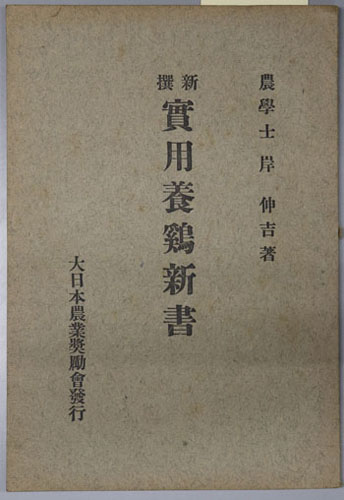 農學士 岸 伸吉著
新撰
實用養鷄新書
大日本農業奬勵會發行